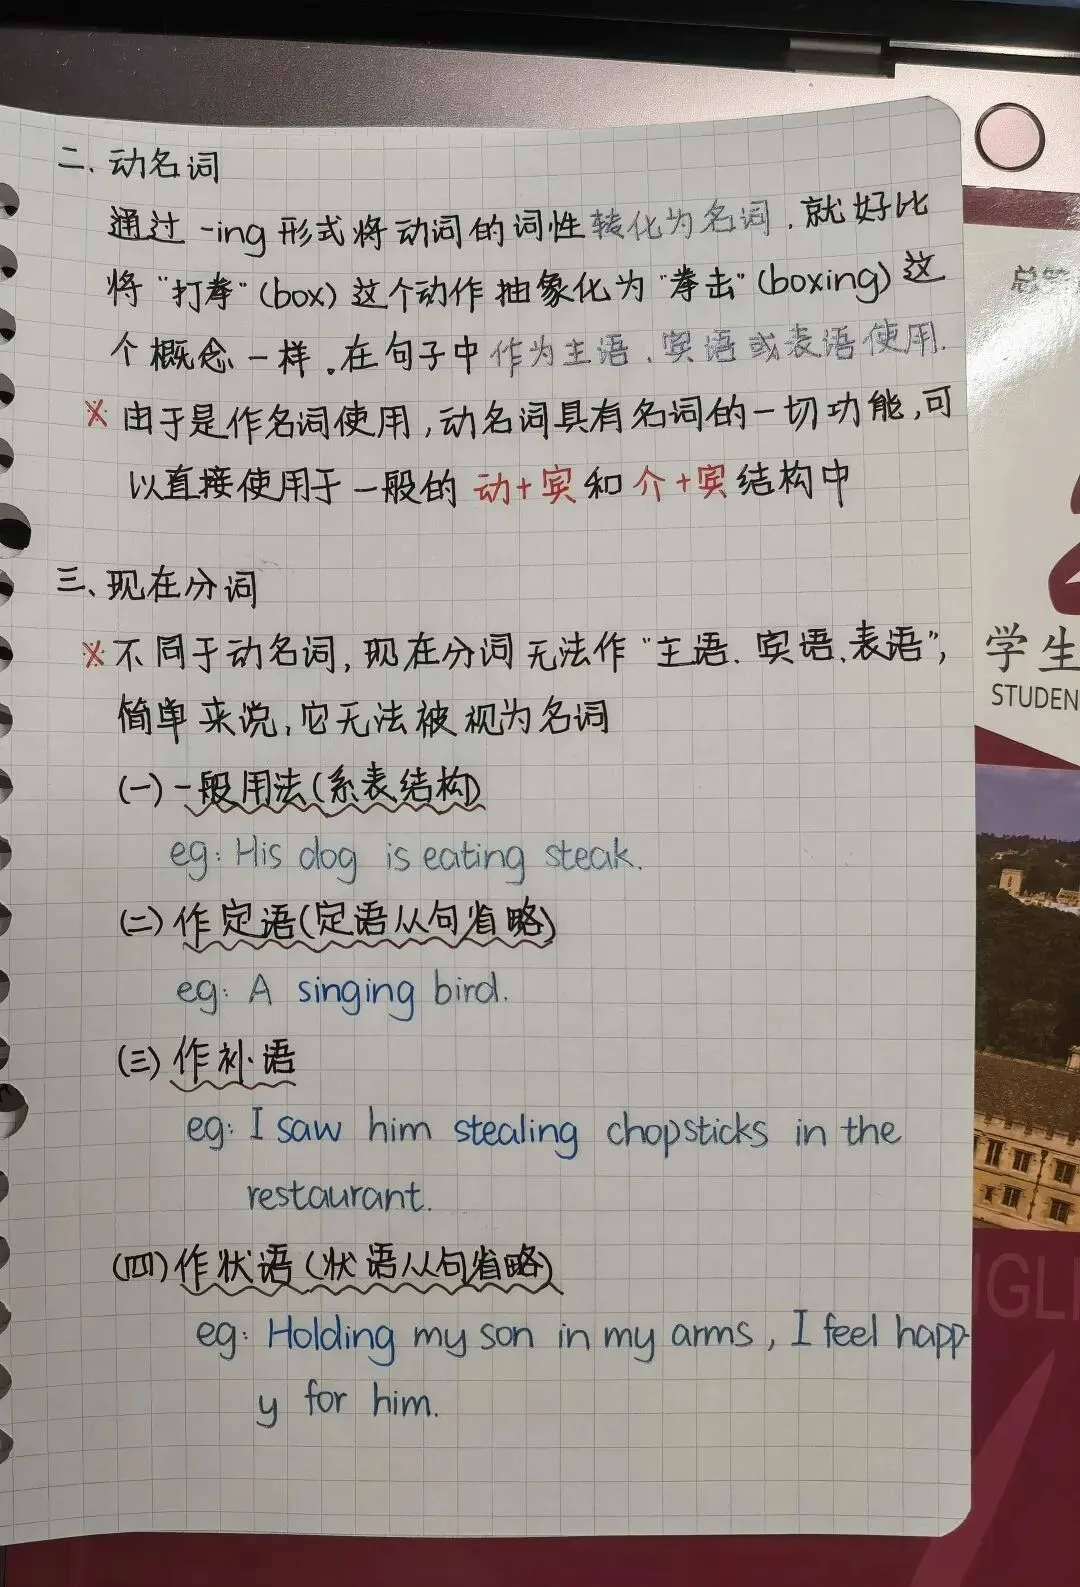 二、动名词
通过 -ing 形式将动词的词性转化为名词，就好比
将“打拳”(box) 这个动作抽象化为“拳击”(boxing) 这
个概念一样。在句子中作为主语、宾语或表语使用.
※ 由于是作名词使用,动名词具有名词的一切功能,可
以直接使用于一般的动+宾和介+宾结构中
三、现在分词
※ 不同于动名词,现在分词无法作“主语、宾语、表语”,
简单来说,它无法被视为名词
(一) 一般用法(系表结构)
eg: His dog is eating steak.
(二) 作定语(定语从句省略)
eg: A singing bird.
(三) 作补语
eg: I saw him stealing chopsticks in the
restaurant.
(四) 作状语(状语从句省略)
eg: Holding my son in my arms, I feel happ-
y for him.
学生
STUDEN
GLI